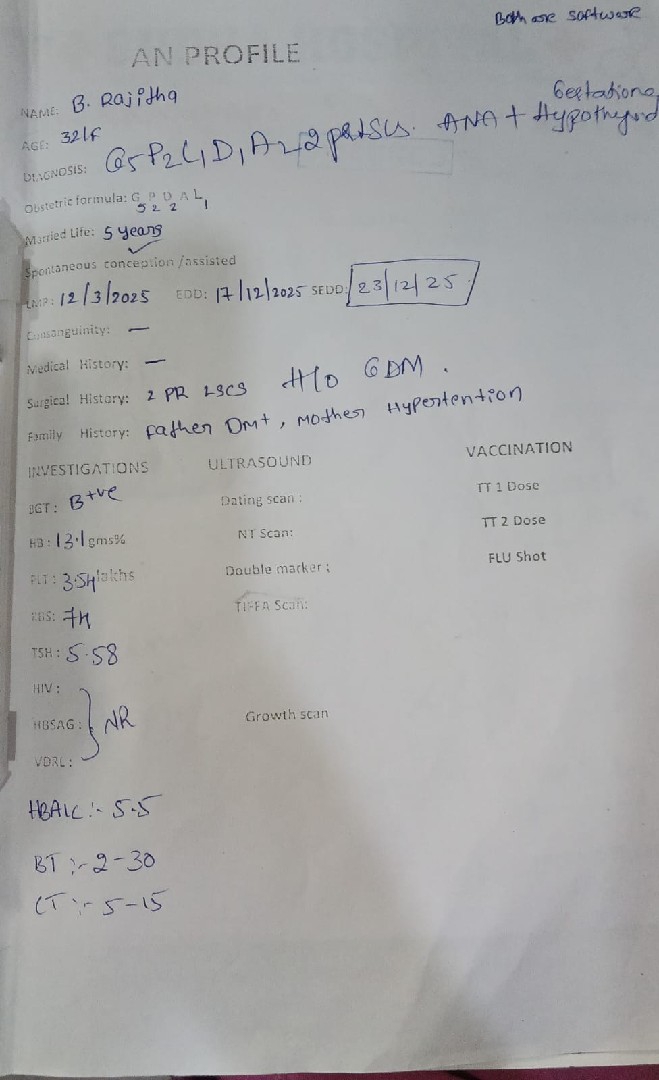 Both are software
AN PROFILE
NAME: B. Rajitha
AGE: 32/F
Gestational
DIAGNOSIS: G5P2L1D1A2 2 pr LSCS. ANA + Hypothyroid
Obstetric formula: G5 P2 D A2 L1
Married Life: 5 years
Spontaneous conception /assisted
LMP: 12/3/2025 EDD: 17/12/2025 SEDD: 23/12/25
Consanguinity: —
Medical History: —
Surgical History: 2 PR LSCS H/o GDM.
Family History: Father DM+, Mother Hypertention
INVESTIGATIONS ULTRASOUND VACCINATION
BGT: B+ve Dating scan: TT 1 Dose
HB: 13.1 gms% NT Scan: TT 2 Dose
PLT: 3.54 lakhs Double marker; FLU Shot
RBS: 74 TIFFA Scan:
TSH: 5.58
HIV:
HBSAG: NR Growth scan
VDRL:
HBA1C :- 5.5
BT :- 2-30
CT :- 5-15